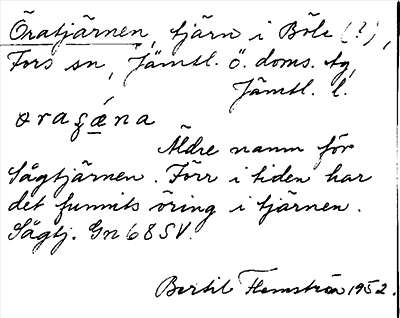 Öratjärnen, tjärn i Böle (?),
Fors sn, Jämtl. ö. doms. tg,
Jämtl. l.
øragǽna
Äldre namn för
Sågtjärnen. Förr i tiden har
det funnits öring i tjärnen.
Sågtj. Gn 68 SV.
Bertil Flemström 1952.